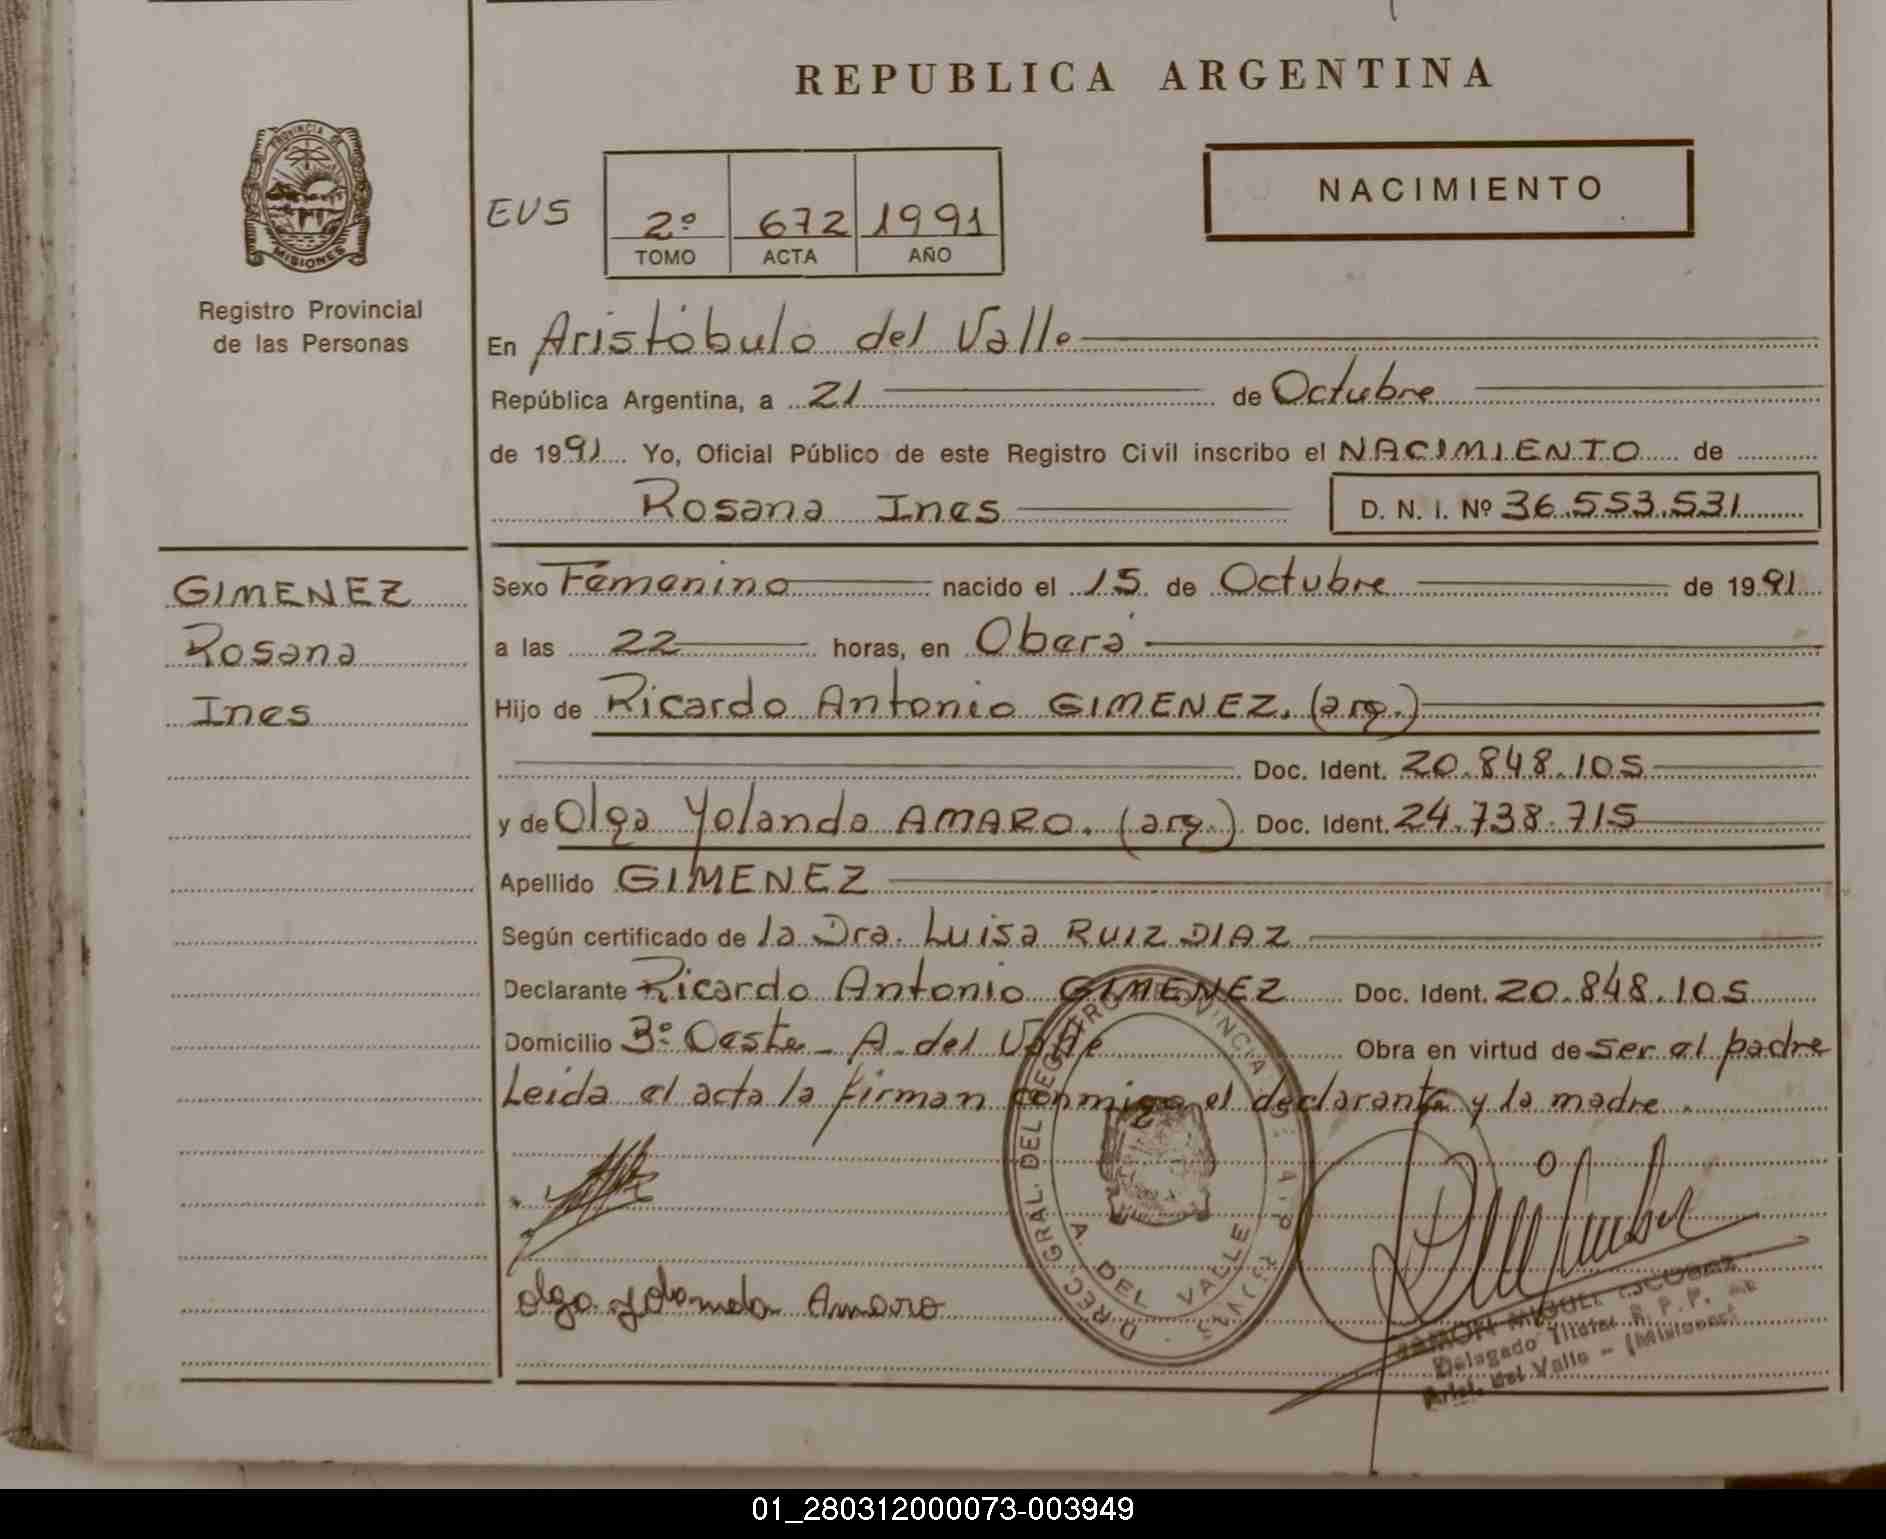 REPUBLICA ARGENTINA
PROVINCIA DE
MISIONES
Registro Provincial
de las Personas
EUS
2º 672 1991
TOMO ACTA AÑO
NACIMIENTO
En Aristóbulo del Valle
República Argentina, a 21 de Octubre
de 1991 Yo, Oficial Público de este Registro Civil inscribo el NACIMIENTO de
Rosana Ines D. N. I. Nº 36.553.531
GIMENEZ
Rosana
Ines
Sexo Femenino nacido el 15 de Octubre de 1991
a las 22 horas, en Oberá
Hijo de Ricardo Antonio GIMENEZ. (arg.)
Doc. Ident. 20.848.105
y de Olga Yolanda AMARO. (arg.) Doc. Ident. 24.738.715
Apellido GIMENEZ
Según certificado de la Dra. Luisa RUIZ DIAZ
Declarante Ricardo Antonio GIMENEZ Doc. Ident. 20.848.105
Domicilio 3º Oeste - A. del Valle Obra en virtud de ser el padre
Leida el acta la firman conmigo el declarante y la madre.
Olga Yolanda Amaro
DIREC. GRAL. DEL REGISTRO PROVINCIAL
A. DEL VALLE
RAMON MIGUEL ESCOBAR
Delegado Titular R.P.P.
Arist. del Valle - (Misiones)
01_280312000073-003949